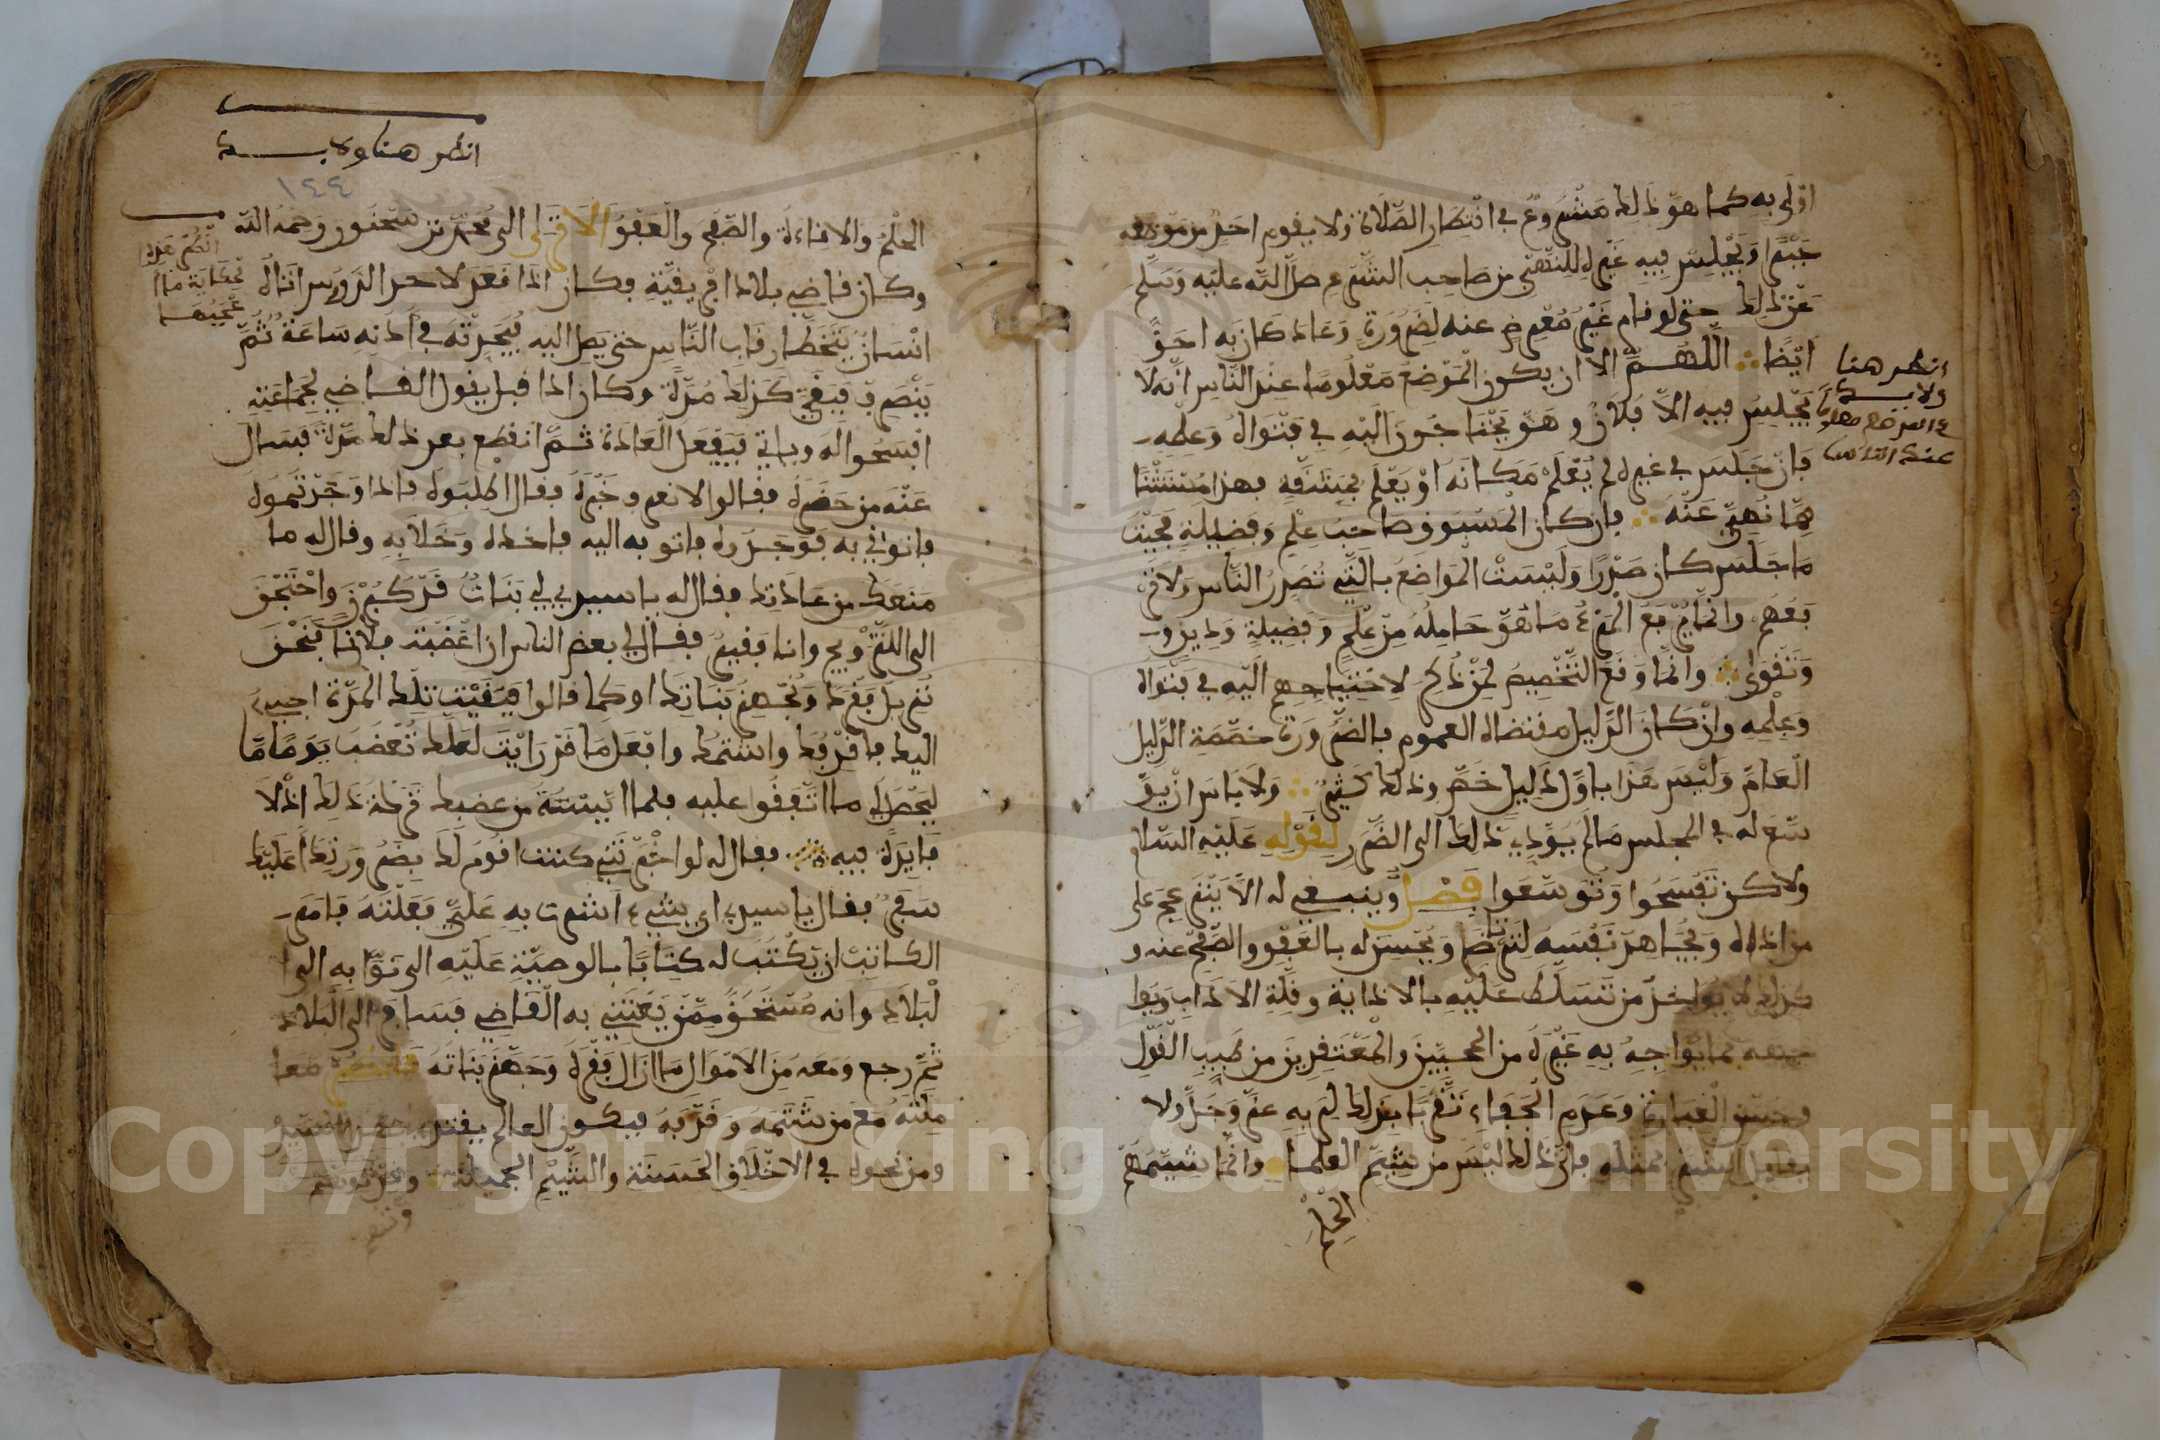 اولى به كما هو ذلك مشروع في انتظار الصلاة ولا يقوم احد من موضعه
جبرا ويجلس فيه غيره للنهي من صاحب الشرع صلى الله عليه وسلم
عن ذلك حتى لو قام غير معرض عنه لضرورة وعاد كان به احق
ايضا اللهم الا ان يكون الموضع معلوما عند الناس انه لا
يجلس فيه الا فلان وهو يحتاجون اليه في فتواه وعلمه
فان جلس في غيره لم يعلم مكانه او يعلم بمشقة فهذا مستثنا
مما نهي عنه فان كان المسبوق صاحب علم وفضيلة فحيث
ما جلس كان صدرا وليست المواضع بالتي تصدر الناس ولا ترفعهم
وانما يرفع المرء ما هو حامله من علم وفضيلة ودين
وتقوى وانما وقع التخصيص لمن ذكر لاحتياجهم اليه في فتواه
وعلمه وان كان الدليل مقتضاه العموم فالضرورة خصصة الدليل
العام وليس هذا باول دليل خص وذلك كثير ولا باس ان يو
سع له في المجلس ما لم يودي ذلك الى الضرر لقوله عليه السلام
ولاكن تفسحوا وتوسعوا فصل وينبغي له الا ينزعج على
من اذاه ويجاهد نفسه لترتاض ويحسن له بالعفو والصفح عنه و
كذلك لا يواخذ من تسلط عليه بالاذاية وقلة الاداب ويوا
جهه بما يواجه به غيره من المحبين والمعتقدين من طيب القول
وحسن العبارة وعدم الجفاء تقربا بذلك لربه عز وجل ولا
يقابل الشر بمثله فان ذلك ليس من شيم العلماء وانما شيمهم
الحلم
انظر هنا
ولابد
عند الناس
انظر هنا ولابد
١٤٤
الحلم والاناءة والصفح والعفو الا ترى الى محمد بن سحنون رحمه الله
وكان قاضي بلاد افريقية وكان اذا قعد لاخذ الدروس اتاه
انسان يتخطا رقاب الناس حتى يصل اليه فيحدثه في اذنه ساعة ثم
ينصرف فبقي كذلك مدة وكان اذا قبل يقول القاضي لجماعته
افسحوا له وياتي فيفعل العادة ثم انقطع بعد ذلك مدة فسال
عنه من حضره فقالوا لا نعرف خبره فقال اطلبوه فاذا وجدتموه
فاتوني به فوجدوه فاتوا به اليه فاخذه وخلا به وقال له ما
منعك من عادتك فقال له يا سيدي لي بنات قد كبرن واحتجن
الى التزويج وانا فقير فقال لي بعض الناس ان اغضبت فلانا فنحن
نزيل فقرك ونجهز بناتك او كما قالوا فبقيت تلك المدة اجيء
اليك فاقرفك واشتمك وافعل ما قد رايت لعلك تغضب يوما ما
ليحصل لي ما اتفقوا عليه فلما ايست من غضبك تركت ذلك اذ لا
فايدة فيه فقال له لو اخبرتني كنت اقوم لك بضرورتك اعليك
سفر فقال يا سيدي اي شيء اشرت به علي فعلته فامر
الكاتب ان يكتب له كتابا بالوصية عليه الى نوابه الى
البلاد وانه مستحق ممن يعتني به القاضي فسافر الى البلاد
ثم رجع ومعه من الاموال ما ازال فقره وجهز بناته
ملته مع من شتمه وقذفه فيكون العالم يقتدي بهذا السيد
ومن نحوه في الاخلاق الحسنة والشيم الجميلة
انظر هذه
حكاية ما
عجبها